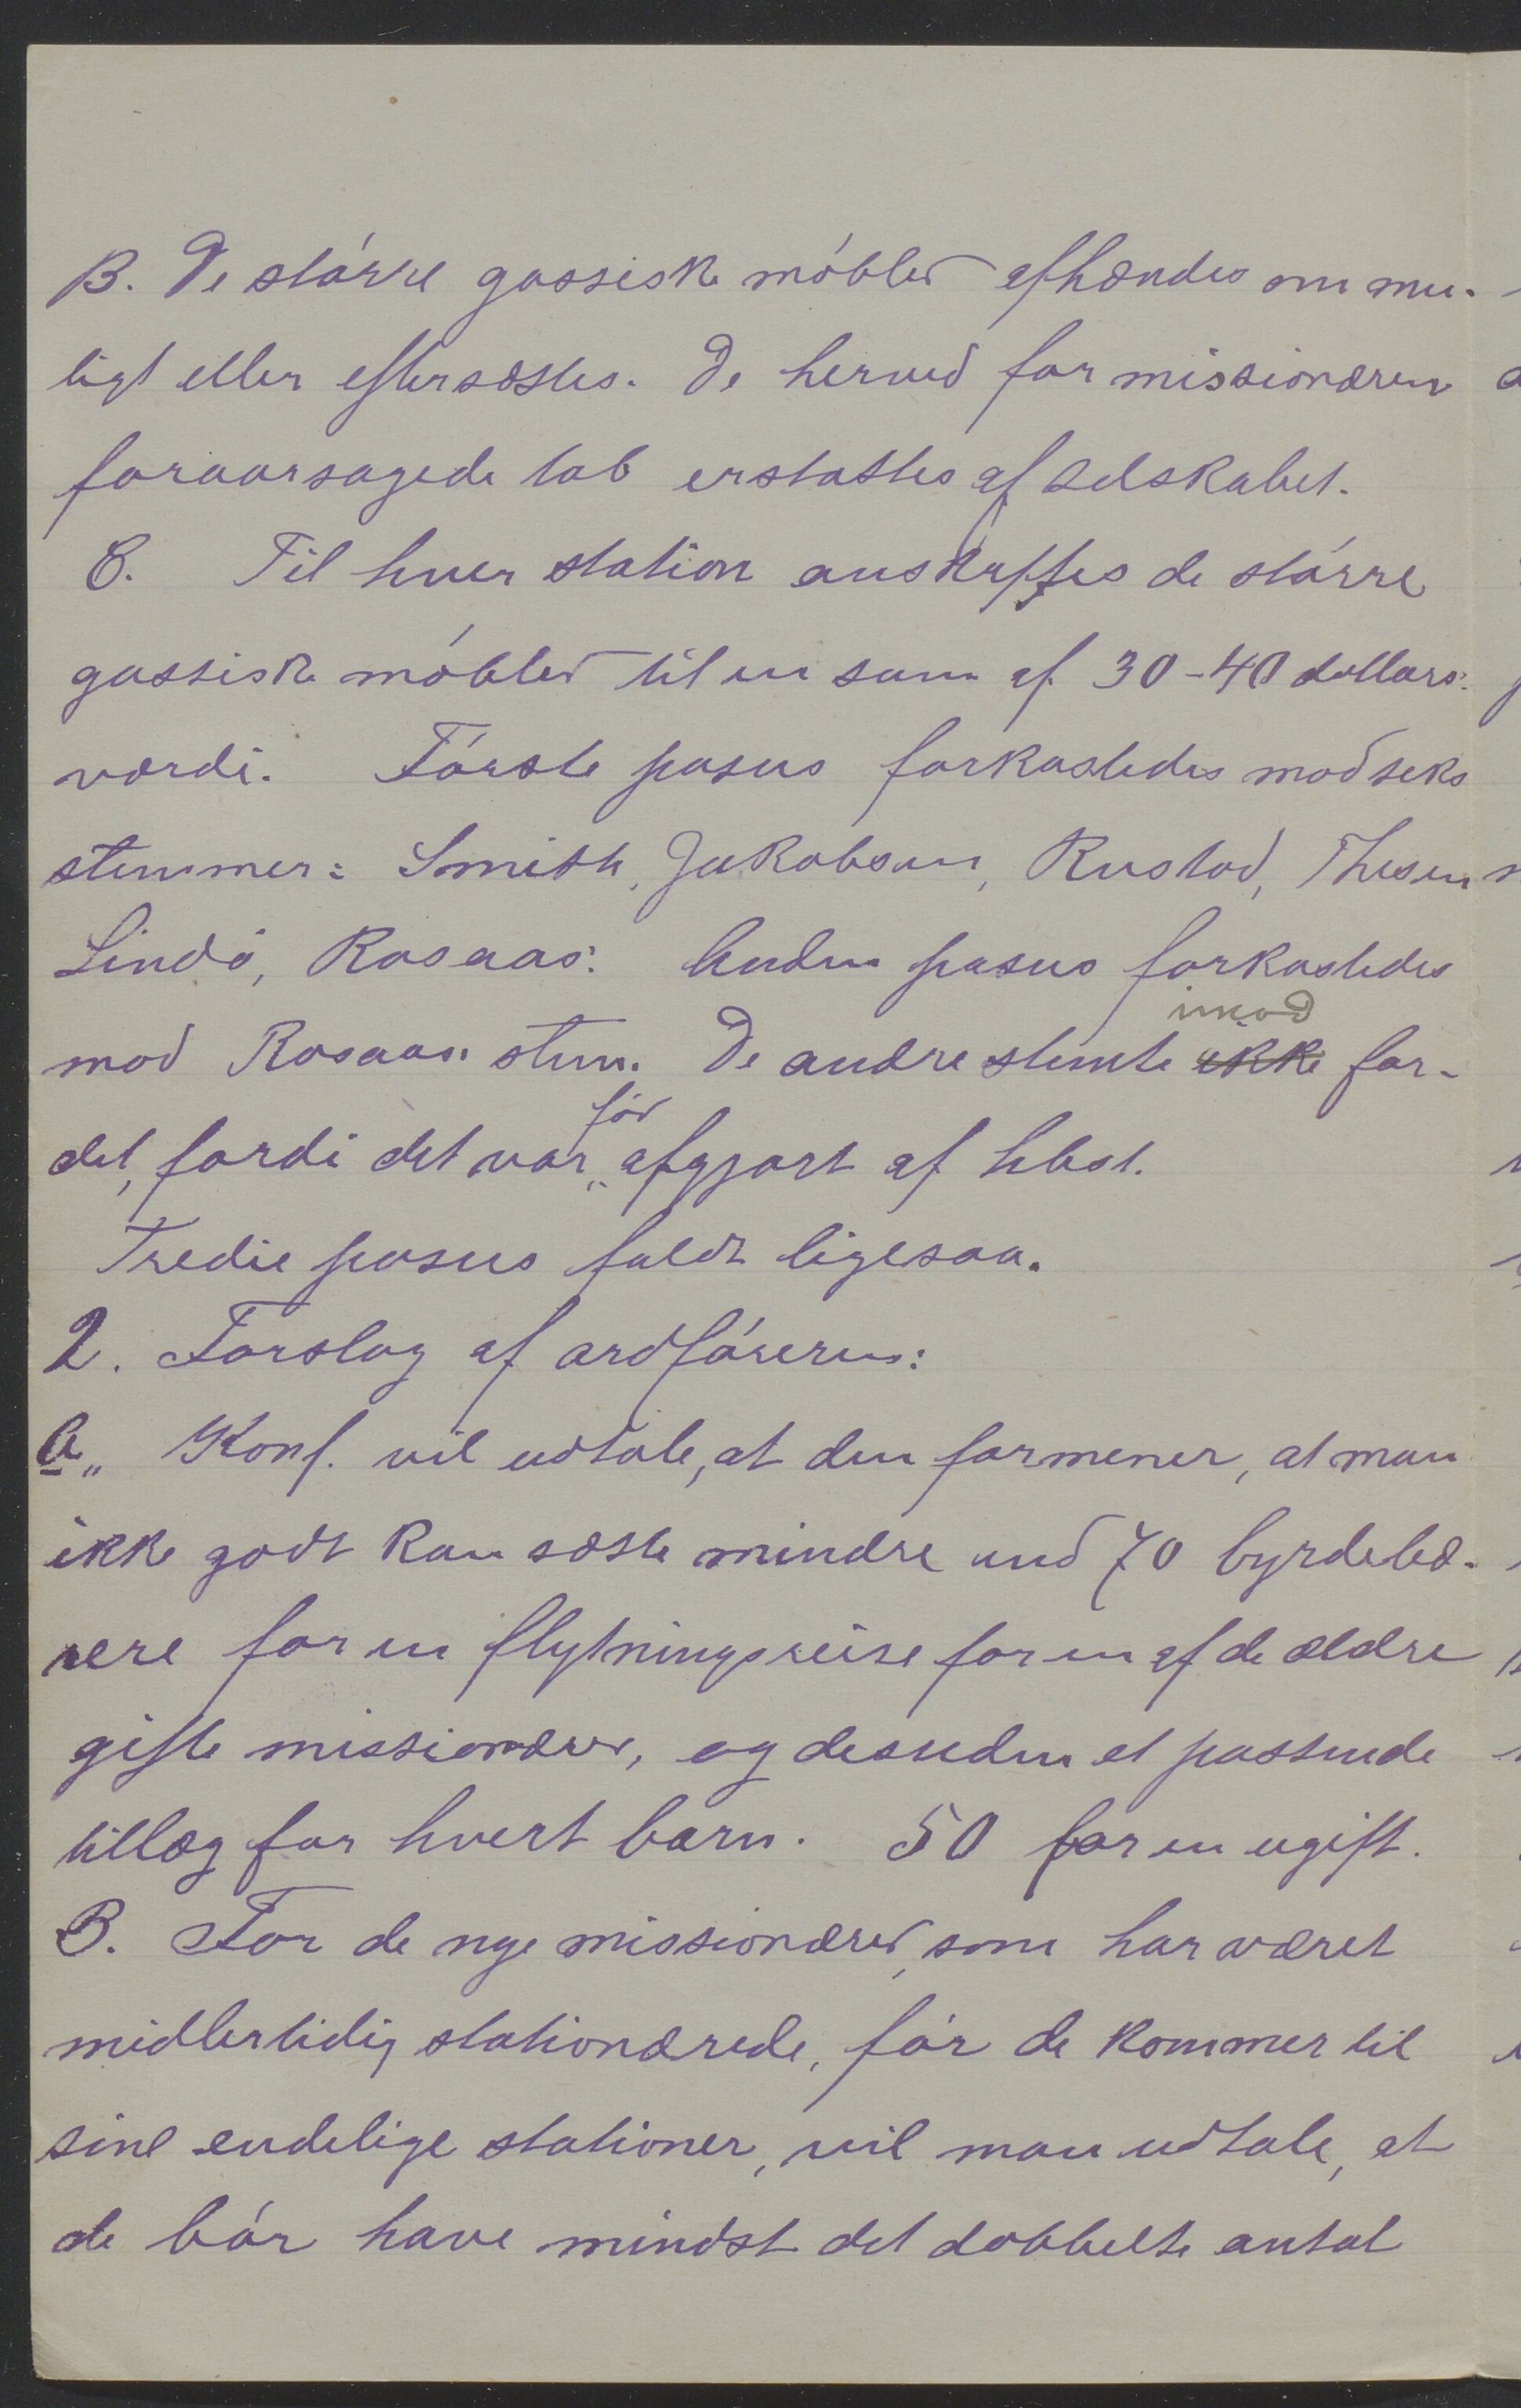 B. De større gassiske møbler afhændes om mu-
ligt eller eftersættes. De herved for missionæren
foraarsagede tab erstattes af selskabet.
C. Til hver station anskaffes de større
gassiske møbler til en sum af 30-40 dollars.
værdi. Første pasus forkastedes mod seks
stemmer: Smith, Jakobsen, Rustad, Thesen
Lindø, Rosaas. Anden pasus forkastedes
mod Rosaas stem. De andre stemte ikke imod for-
det, fordi det var før afgjort af hbst.
Tredie pasus faldt ligesaa.
2. Forslag af ordføreren:
A „ Konf. vil udtale, at den formener, at man
ikke godt kan sætte mindre end 70 byrdebæ-
rere for en flytningsreise for en af de ældre
gifte missionærer, og desuden et passende
tillæg for hvert barn. 50 for en ugift.
B. For de nye missionærer, som har været
midlertidig stationærede, før de kommer til
sine endelige stationer, vil man udtale, at
de bør have mindst det dobbelte antal